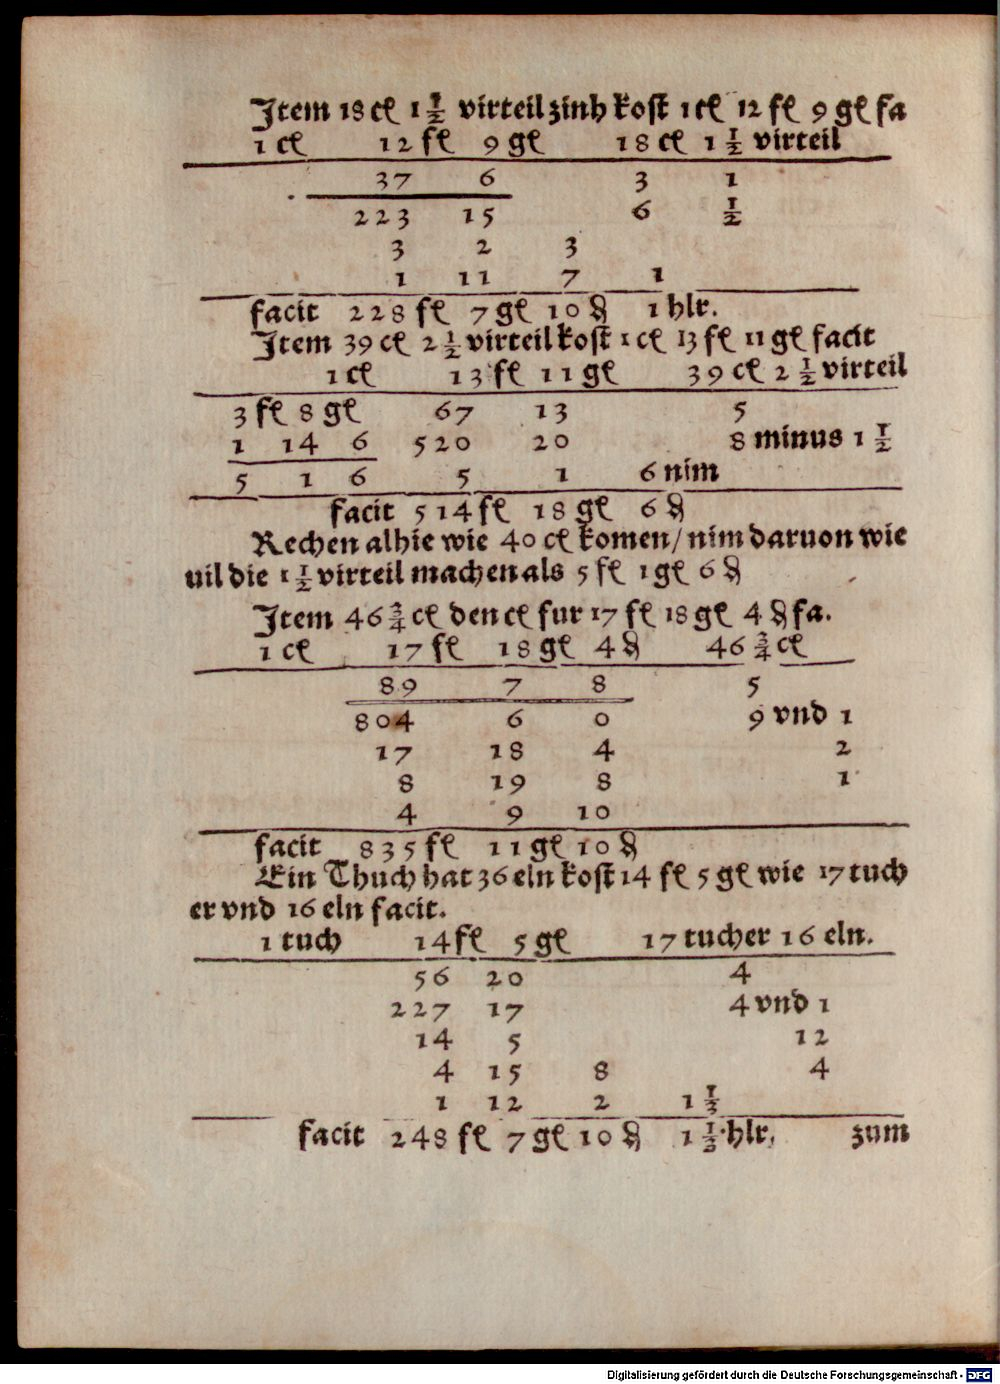 Item 18 cł 1 1/2 virteil zinh kost 1 cł 12 fł 9 gł fa
1 cł 12 fł 9 gł 18 cł 1 1/2 virteil
37 6 3 1
223 15 6 1/2
3 2 3
1 11 7 1
facit 228 fł 7 gł 10 ₰ 1 hlr.
Item 39 cł 2 1/2 virteil kost 1 cł 13 fł 11 gł facit
1 cł 13 fł 11 gł 39 cł 2 1/2 virteil
3 fł 8 gł 67 13 5
1 14 6 520 20 8 minus 1 1/2
5 1 6 5 1 6 nim
facit 514 fł 18 gł 6 ₰
Rechen alhie wie 40 cł komen/ nim daruon wie
uil die 1 1/2 virteil machen als 5 fł 1 gł 6 ₰
Item 46 3/4 cł den cł fur 17 fł 18 gł 4 ₰ fa.
1 cł 17 fł 18 gł 4 ₰ 46 3/4 cł
89 7 8 5
804 6 0 9 vnd 1
17 18 4 2
8 19 8 1
4 9 10
facit 835 fł 11 gł 10 ₰
Ein Thuch hat 36 eln kost 14 fł 5 gł wie 17 tuch
er vnd 16 eln facit.
1 tuch 14 fł 5 gł 17 tucher 16 eln.
56 20 4
227 17 4 vnd 1
14 5 12
4 15 8 4
1 12 2 1 1/3
facit 248 fł 7 gł 10 ₰ 1 1/3 hlr. zum
Digitalisierung gefördert durch die Deutsche Forschungsgemeinschaft - DFG